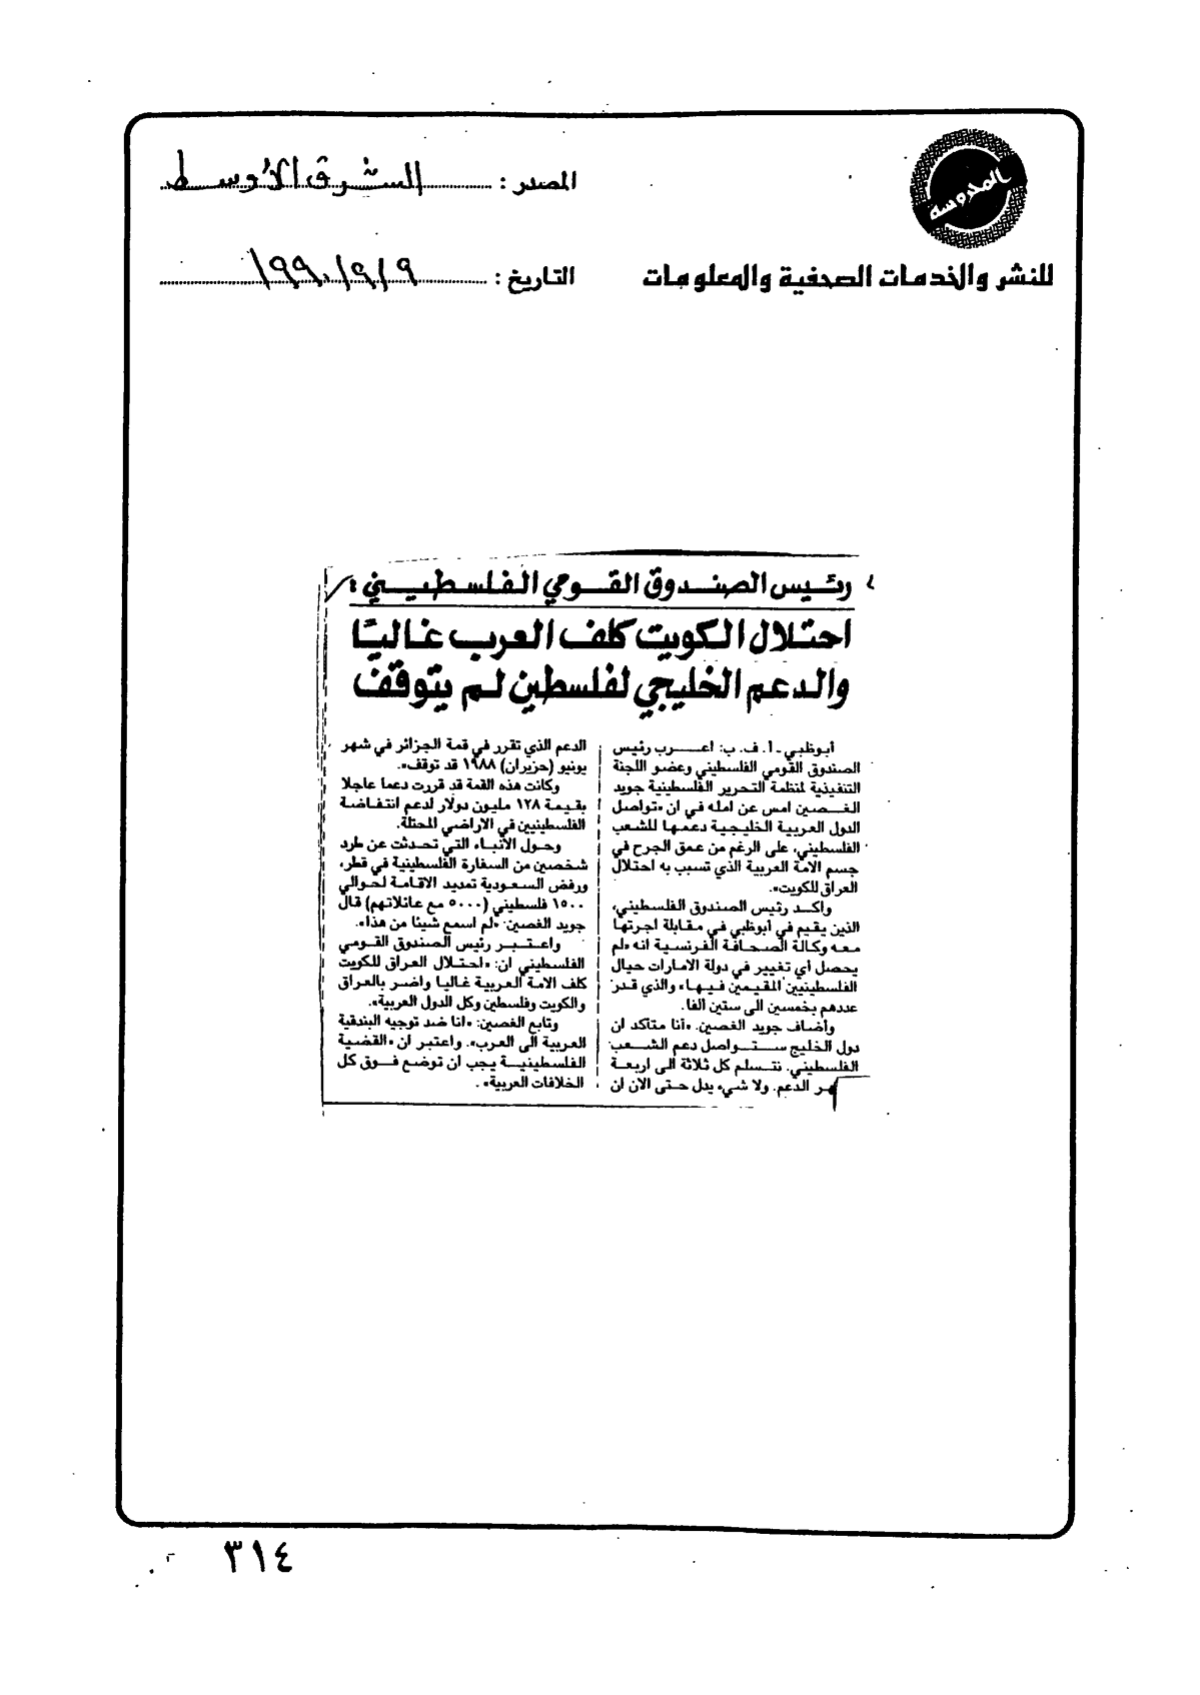 المحروسة
المصدر : الشرق الأوسط
للنشر والخدمات الصحفية والمعلومات
التاريخ : ١٩٩٠/٩/٩
رئيس الصندوق القومي الفلسطيني :
احتلال الكويت كلف العرب غاليًا
والدعم الخليجي لفلسطين لم يتوقف
أبوظبي - أ. ف. ب: اعرب رئيس
الصندوق القومي الفلسطيني وعضو اللجنة
التنفيذية لمنظمة التحرير الفلسطينية جويد
الغصين امس عن امله في ان «تواصل
الدول العربية الخليجية دعمها للشعب
الفلسطيني، على الرغم من عمق الجرح في
جسم الامة العربية الذي تسبب به احتلال
العراق للكويت».
واكد رئيس الصندوق الفلسطيني،
الذين يقيم في أبوظبي في مقابلة اجرتها
معه وكالة الصحافة الفرنسية انه «لم
يحصل أي تغيير في دولة الامارات حيال
الفلسطينيين المقيمين فيها» والذي قدر
عددهم بخمسين الى ستين الفا.
وأضاف جويد الغصين. «أنا متأكد ان
دول الخليج ستواصل دعم الشعب
الفلسطيني. نتسلم كل ثلاثة الى اربعة
هر الدعم. ولا شيء يدل حتى الان ان
الدعم الذي تقرر في قمة الجزائر في شهر
يونيو (حزيران) ١٩٨٨ قد توقف».
وكانت هذه القمة قد قررت دعما عاجلا
بقيمة ١٢٨ مليون دولار لدعم انتفاضة
الفلسطينيين في الاراضي المحتلة.
وحول الأنباء التي تحدثت عن طرد
شخصين من السفارة الفلسطينية في قطر،
ورفض السعودية تمديد الاقامة لحوالي
١٥٠٠ فلسطيني (٥٠٠٠ مع عائلاتهم) قال
جويد الغصين: «لم اسمع شيئا من هذا».
واعتبر رئيس الصندوق القومي
الفلسطيني ان: «احتلال العراق للكويت
كلف الامة العربية غاليا واضر بالعراق
والكويت وفلسطين وكل الدول العربية».
وتابع الغصين: «انا ضد توجيه البندقية
العربية الى العرب». واعتبر ان «القضية
الفلسطينية يجب ان توضع فوق كل
الخلافات العربية».
٣١٤